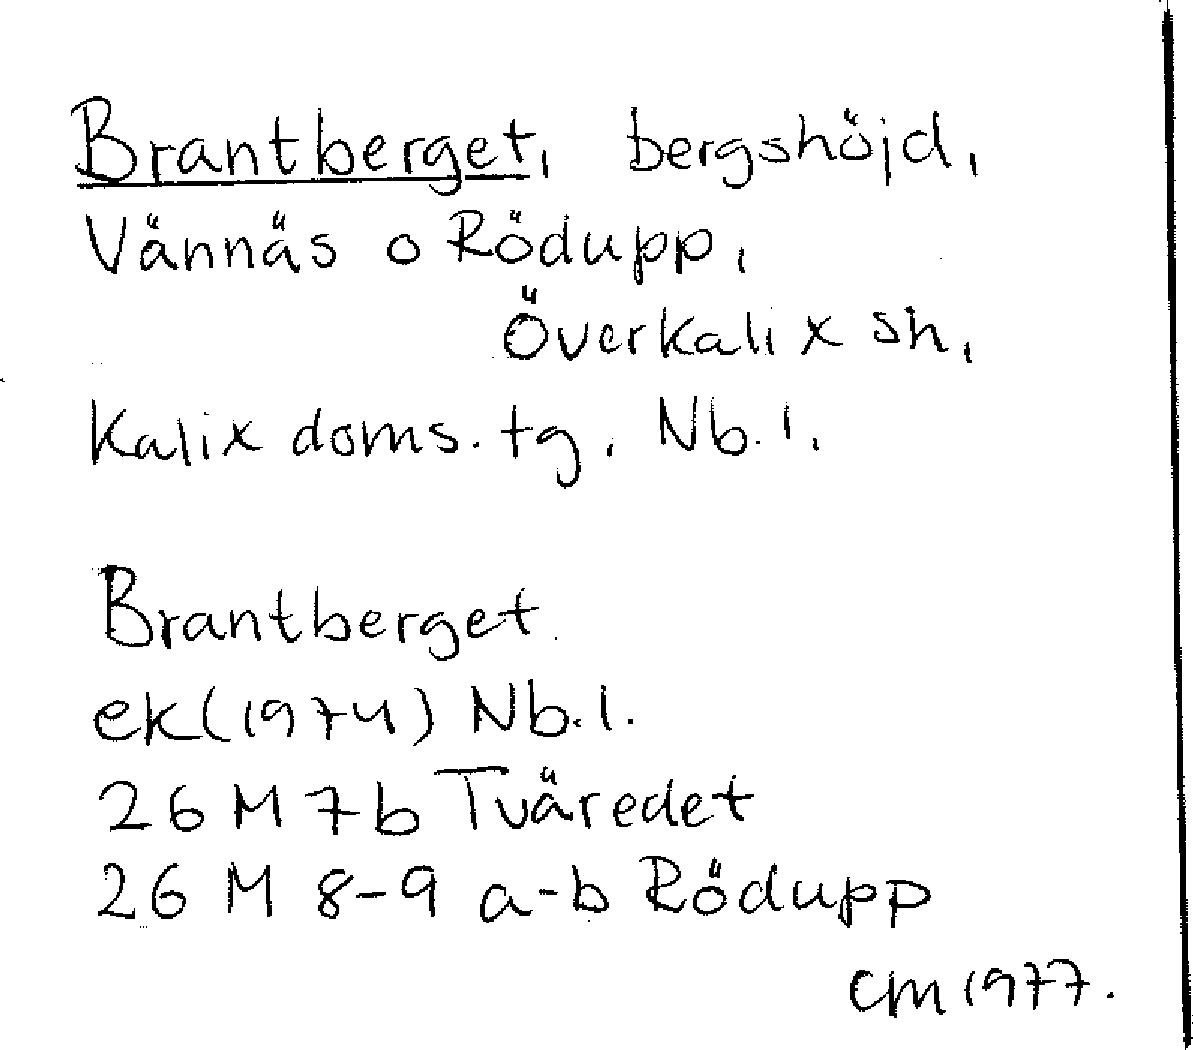 Brantberget, bergshöjd,
Vännäs o Rödupp,
Överkalix sn,
Kalix doms. tg, Nb. l,
Brantberget.
ek(1974) Nb. l.
26 M 7b Tväredet
26 M 8-9 a-b Rödupp
CM 1977.